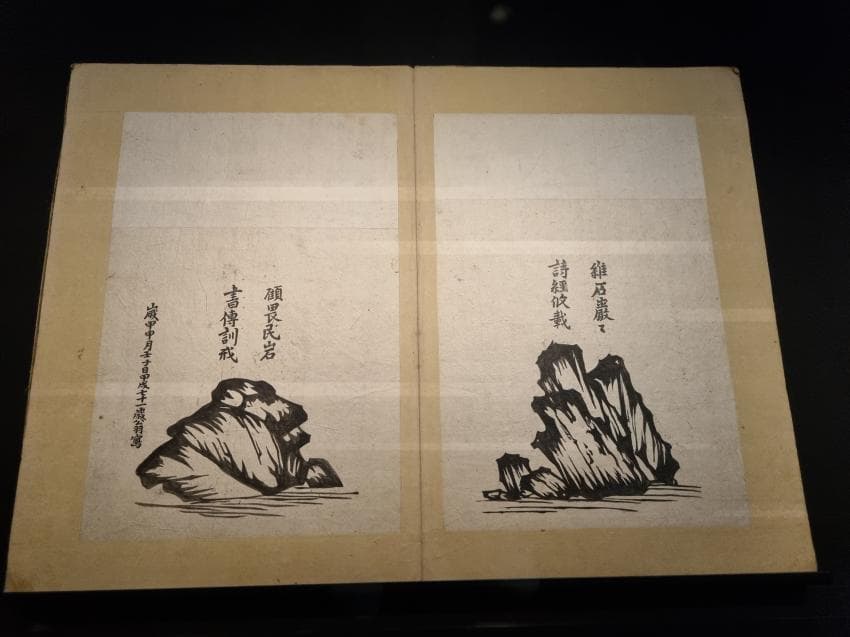 維石巖〻
詩經攸載
顧畏民岩
書傳訓戒
歲甲申月壬子日甲戌七十一歲翁寫